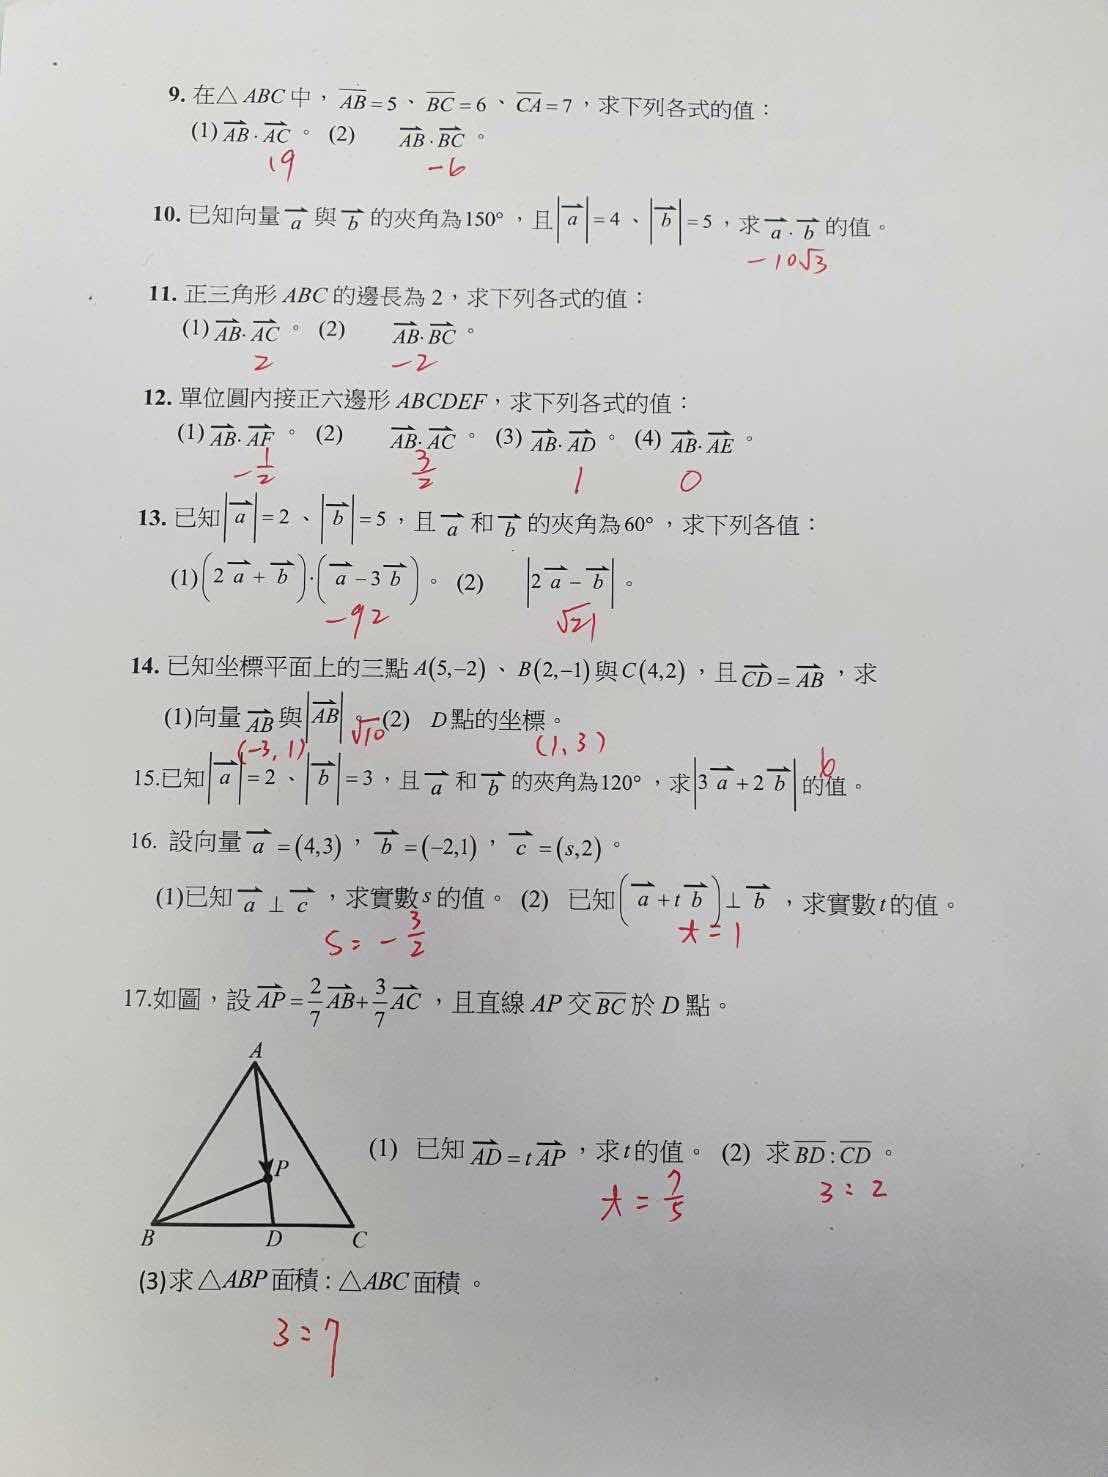 9. 在△ABC中，AB=5、BC=6、CA=7，求下列各式的值：
(1) AB·AC。 (2) AB·BC。
19 -6
10. 已知向量 a 與 b 的夾角為150°，且|a|=4、|b|=5，求 a·b 的值。
-10√3
11. 正三角形ABC的邊長為2，求下列各式的值：
(1) AB·AC。 (2) AB·BC。
2 -2
12. 單位圓內接正六邊形ABCDEF，求下列各式的值：
(1) AB·AF。 (2) AB·AC。 (3) AB·AD。 (4) AB·AE。
-1/2 3/2 1 0
13. 已知|a|=2、|b|=5，且 a 和 b 的夾角為60°，求下列各值：
(1) (2a+b)·(a-3b)。 (2) |2a-b|。
-92 √21
14. 已知坐標平面上的三點A(5,-2)、B(2,-1)與C(4,2)，且CD=AB，求
(1)向量AB與|AB|。(2) D點的坐標。
(-3,1) √10 (1,3)
15.已知|a|=2、|b|=3，且 a 和 b 的夾角為120°，求|3a+2b|的值。
6
16. 設向量 a=(4,3)，b=(-2,1)，c=(s,2)。
(1)已知 a⊥c，求實數s的值。 (2) 已知(a+tb)⊥b，求實數t的值。
s=-3/2 t=1
17.如圖，設AP=2/7AB+3/7AC，且直線AP交BC於D點。
A
P
B D C
(1) 已知AD=tAP，求t的值。 (2) 求BD:CD。
t=7/5 3:2
(3)求△ABP面積:△ABC面積。
3:7